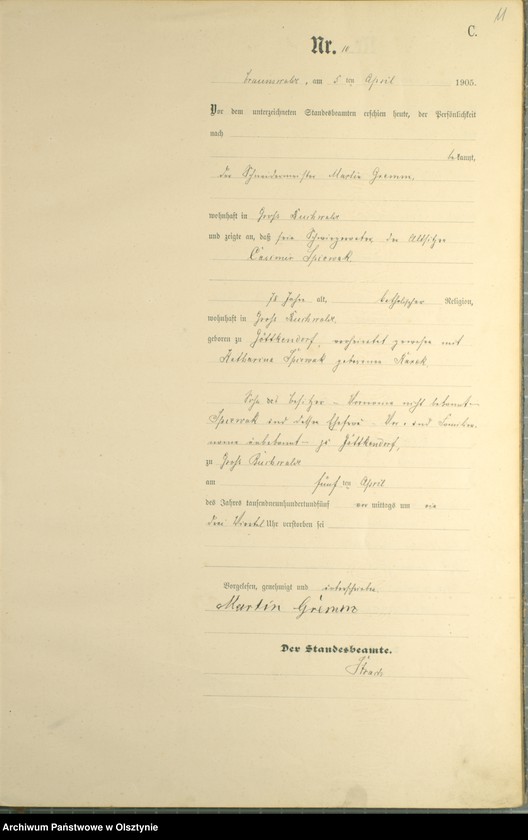 11
C.
Nr. 10
Braunswalde, am 5 ten April 1905.
Vor dem unterzeichneten Standesbeamten erschien heute, der Persönlichkeit
nach
bekannt,
der Schneidermeister Martin Grimm,
wohnhaft in Groß Buchwalde
und zeigte an, daß sein Schwiegervater, der Altsitzer
Casimir Spiewak,
78 Jahre alt, katholischer Religion,
wohnhaft in Groß Buchwalde,
geboren zu Göttkendorf, verheiratet gewesen mit
Katharina Spiewak geborenen
Sohn des Besitzer – Vorname nicht bekannt –
Spiewak und dessen Ehefrau – Vor- und Familien-
name unbekannt – zu Göttkendorf,
zu Groß Buchwalde
am fünf ten April
des Jahres tausendneunhundertundfünf vor mittags um ein
drei Viertel Uhr verstorben sei
Vorgelesen, genehmigt und unterschrieben
Martin Grimm
Der Standesbeamte.
Archiwum Państwowe w Olsztynie